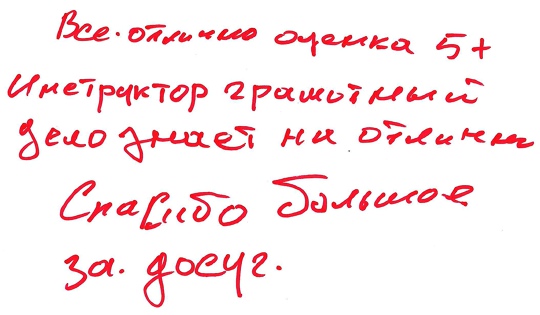 Все.отлично оценка 5+
Инструктор грамотный
дело знает на отлично
Спасибо большое
за. досуг.